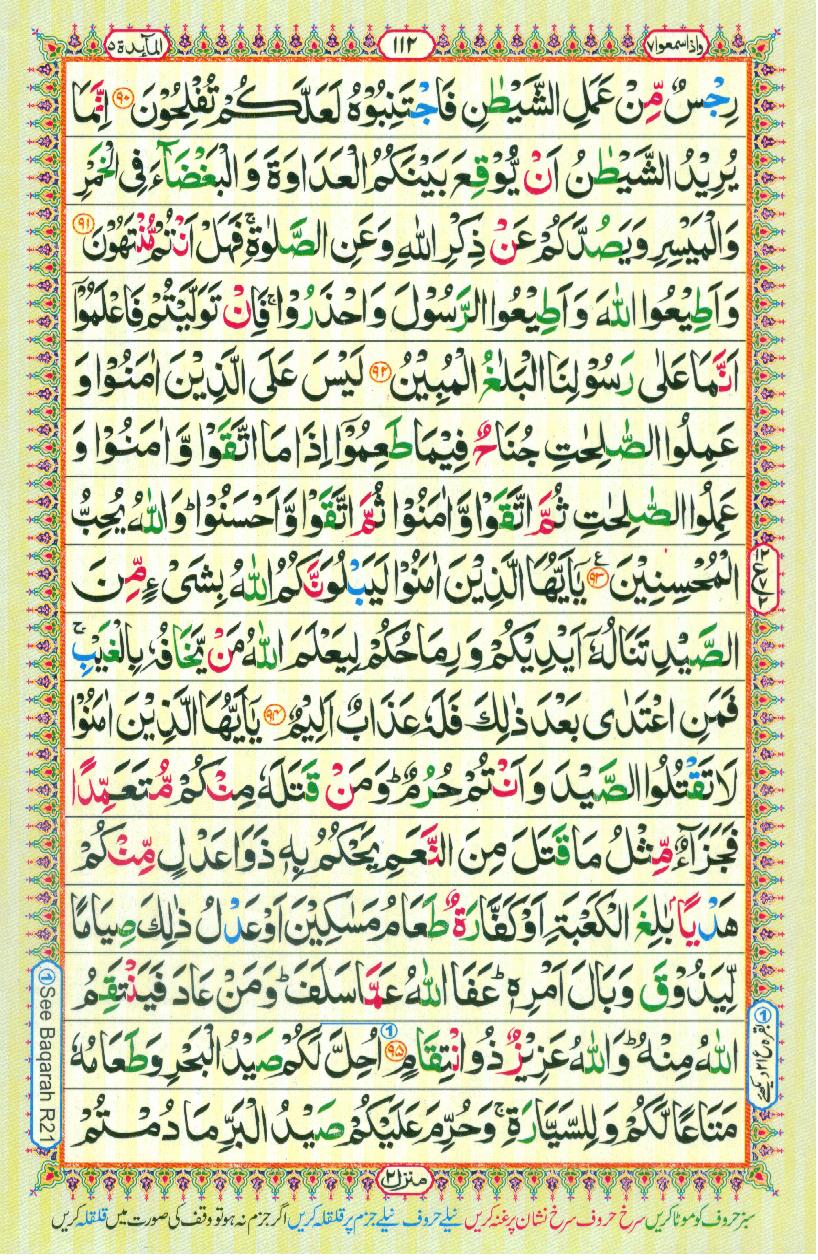 واذاسمعوا۷
۱۱۲
المآئدة ۵
رِجۡسٌ مِّنۡ عَمَلِ الشَّيۡطٰنِ فَاجۡتَنِبُوۡهُ لَعَلَّكُمۡ تُفۡلِحُوۡنَ ۹۰ اِنَّمَا
يُرِيۡدُ الشَّيۡطٰنُ اَنۡ يُّوۡقِعَ بَيۡنَكُمُ الۡعَدَاوَةَ وَ الۡبَغۡضَآءَ فِى الۡخَمۡرِ
وَالۡمَيۡسِرِ وَيَصُدَّكُمۡ عَنۡ ذِكۡرِ اللّٰهِ وَعَنِ الصَّلٰوةِ‌ۚ فَهَلۡ اَنۡتُمۡ مُّنۡتَهُوۡنَ ۹۱
وَاَطِيۡعُوا اللّٰهَ وَاَطِيۡعُوا الرَّسُوۡلَ وَاحۡذَرُوۡا‌ۚ فَاِنۡ تَوَلَّيۡتُمۡ فَاعۡلَمُوۡۤا
اَنَّمَا عَلٰى رَسُوۡلِنَا الۡبَلٰغُ الۡمُبِيۡنُ ۹۲ لَيۡسَ عَلَى الَّذِيۡنَ اٰمَنُوۡا وَ
عَمِلُوا الصّٰلِحٰتِ جُنَاحٌ فِيۡمَا طَعِمُوۡۤا اِذَا مَا اتَّقَوْا وَّاٰمَنُوۡا وَ
عَمِلُوا الصّٰلِحٰتِ ثُمَّ اتَّقَوْا وَّاٰمَنُوۡا ثُمَّ اتَّقَوْا وَّاَحۡسَنُوۡا‌ؕ وَاللّٰهُ يُحِبُّ
الۡمُحۡسِنِيۡنَ ۹۳ ع يٰۤاَيُّهَا الَّذِيۡنَ اٰمَنُوۡا لَيَبۡلُوَنَّكُمُ اللّٰهُ بِشَىۡءٍ مِّنَ
الصَّيۡدِ تَنَالُهٗۤ اَيۡدِيۡكُمۡ وَرِمَاحُكُمۡ لِيَعۡلَمَ اللّٰهُ مَنۡ يَّخَافُهٗ بِالۡغَيۡبِ‌ۚ
فَمَنِ اعۡتَدٰى بَعۡدَ ذٰلِكَ فَلَهٗ عَذَابٌ اَلِيۡمٌ ۹۴ يٰۤاَيُّهَا الَّذِيۡنَ اٰمَنُوۡا
لَا تَقۡتُلُوا الصَّيۡدَ وَاَنۡتُمۡ حُرُمٌ‌ؕ وَمَنۡ قَتَلَهٗ مِنۡكُمۡ مُّتَعَمِّدًا
فَجَزَآءٌ مِّثۡلُ مَا قَتَلَ مِنَ النَّعَمِ يَحۡكُمُ بِهٖ ذَوَا عَدۡلٍ مِّنۡكُمۡ
هَدۡيًاۢ بٰلِغَ الۡكَعۡبَةِ اَوۡ كَفَّارَةٌ طَعَامُ مَسٰكِيۡنَ اَوۡ عَدۡلُ ذٰلِكَ صِيَامًا
لِّيَذُوۡقَ وَبَالَ اَمۡرِهٖ‌ؕ عَفَا اللّٰهُ عَمَّا سَلَفَ‌ؕ وَمَنۡ عَادَ فَيَنۡتَقِمُ
اللّٰهُ مِنۡهُ‌ؕ وَاللّٰهُ عَزِيۡزٌ ذُو انْتِقَامٍ ۹۵ ① اُحِلَّ لَكُمۡ صَيۡدُ الۡبَحۡرِ وَطَعَامُهٗ
مَتَاعًا لَّـكُمۡ وَلِلسَّيَّارَةِ‌ۚ وَحُرِّمَ عَلَيۡكُمۡ صَيۡدُ الۡبَـرِّ مَا دُمۡتُمۡ
① See Baqarah R21
منزل۲
سبز حروف کو موٹا کریں سرخ حروف سرخ نشان پر غنہ کریں نیلے حروف نیلے جزم پر قلقلہ کریں اگر جزم نہ ہو تو وقف کی صورت میں قلقلہ کریں